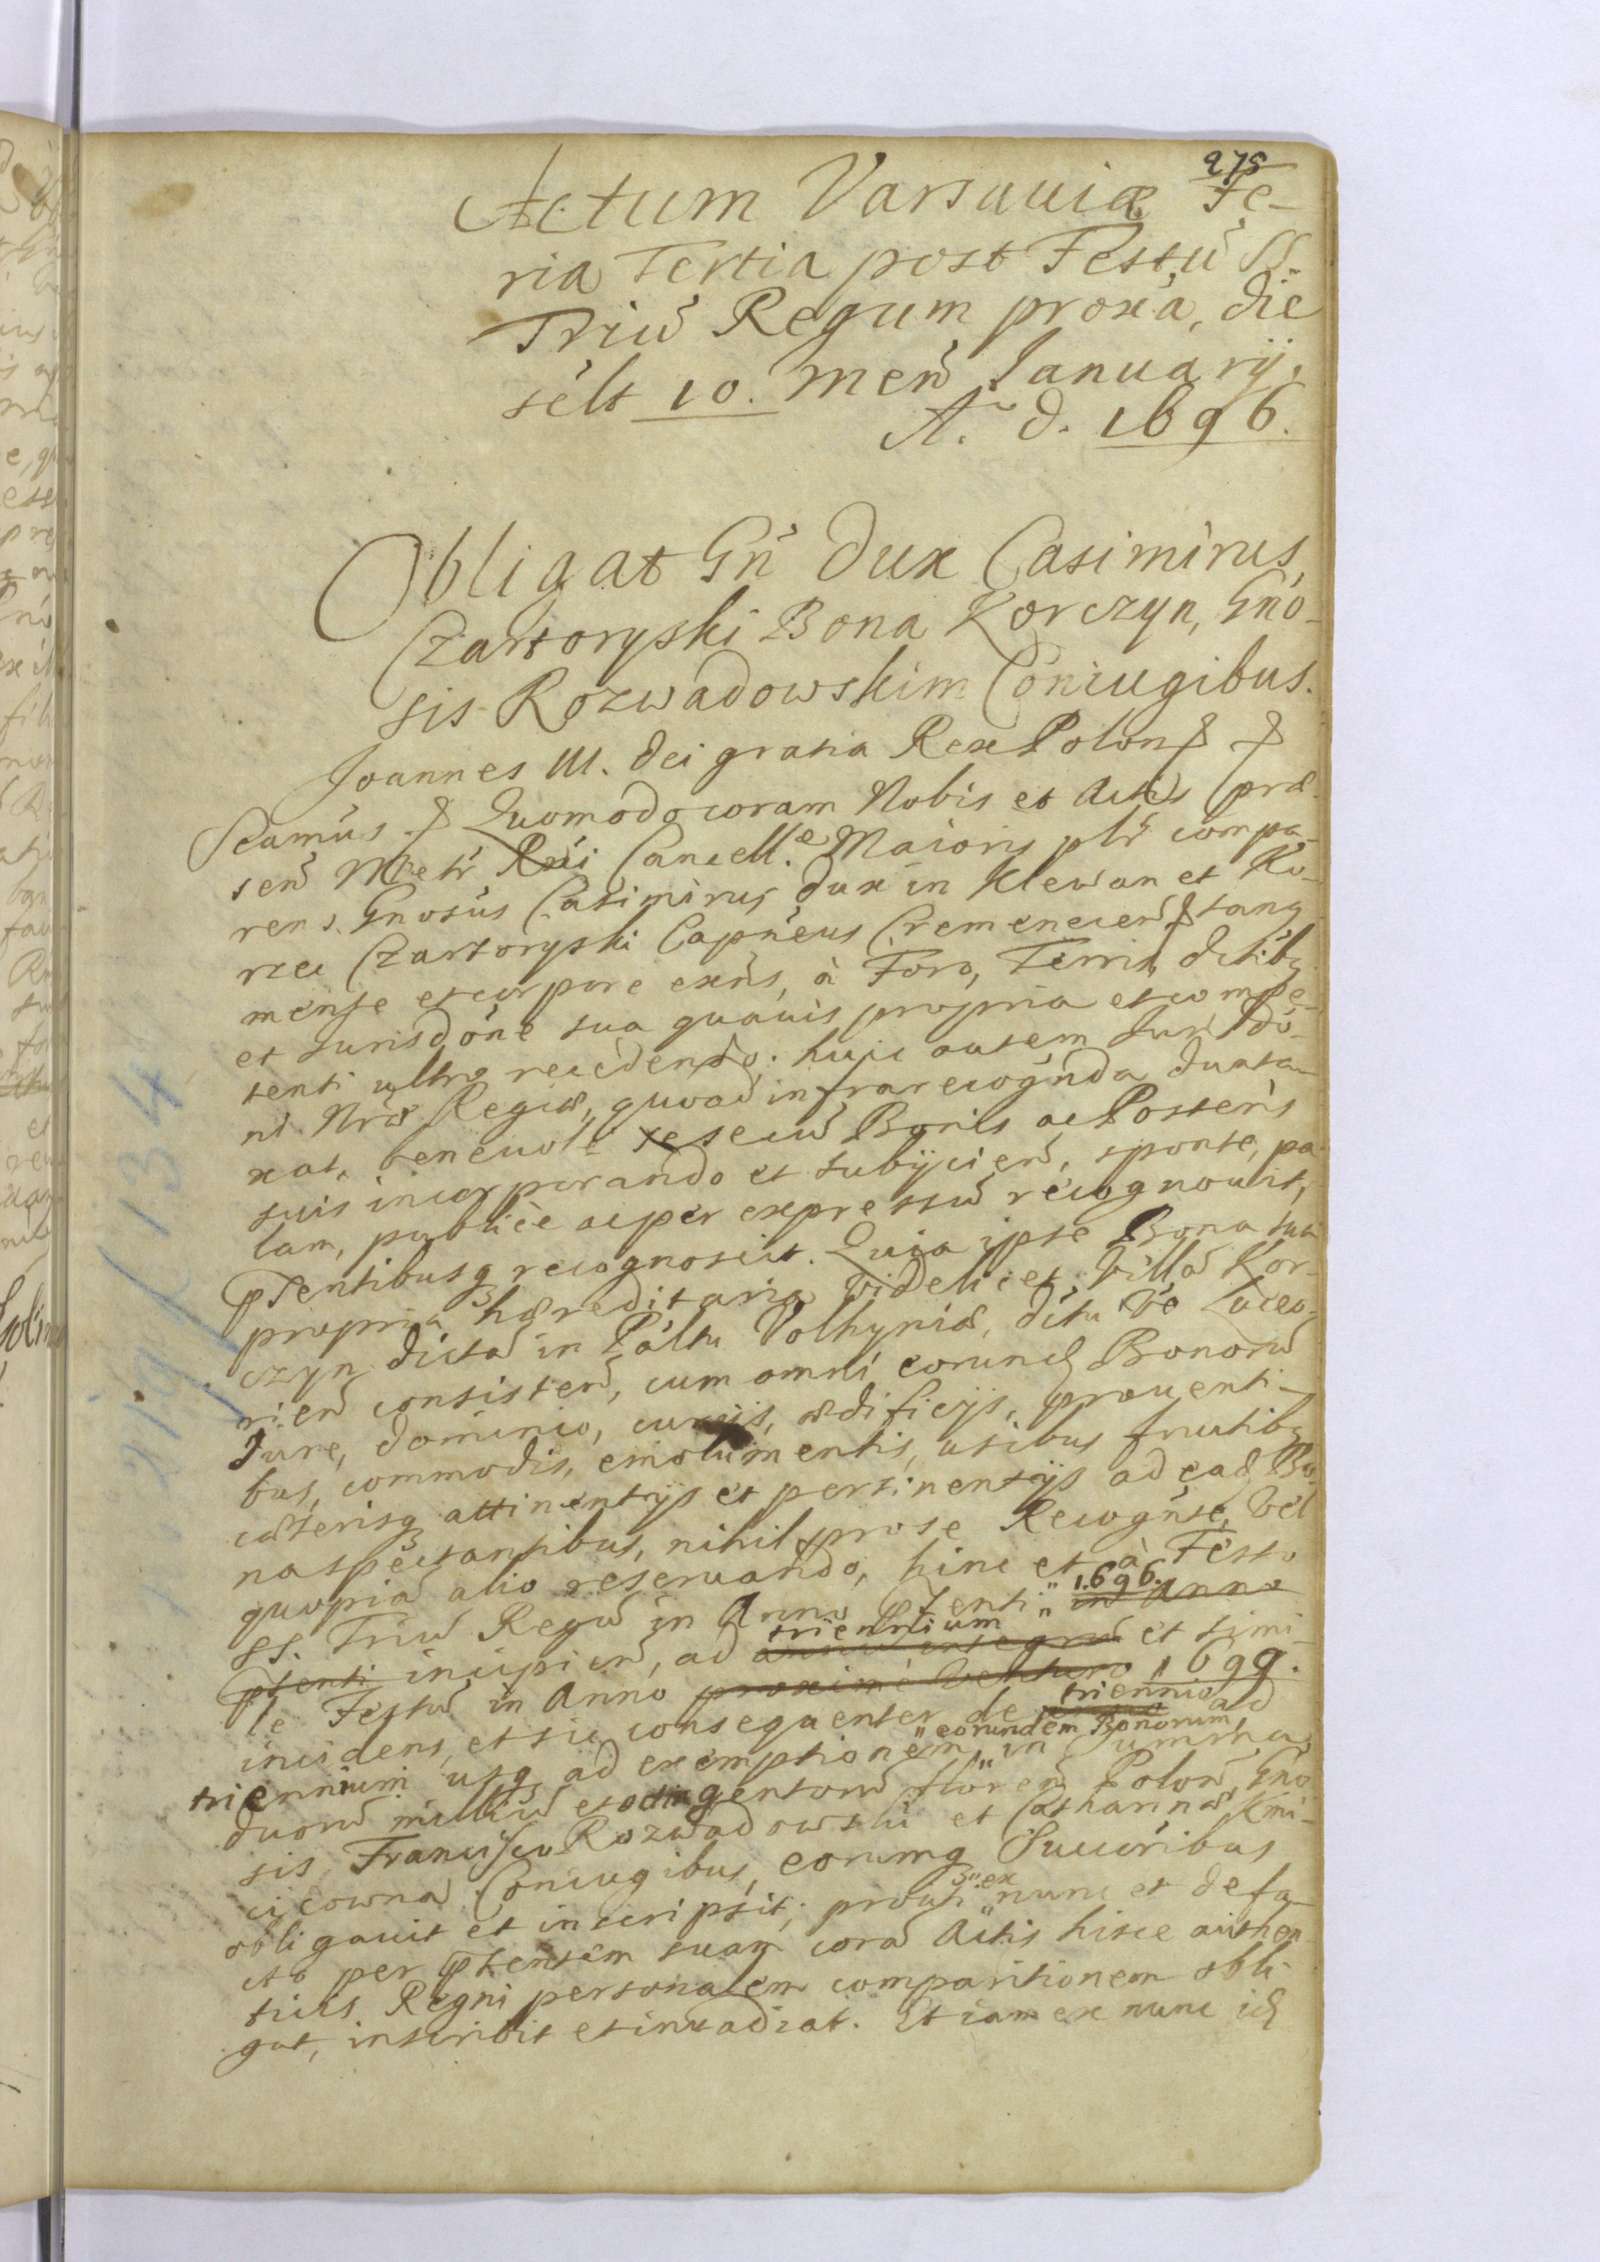 275
Actum Varsauiæ Fe-
ria Tertia post Festũ SS.
Triũ Regum proxá, die
sclt 10. Meñ Januarij,
A. d. 1696.
Obligat Gñ Dux Casimirus
Czartoryski Bona Korczyn, Gño-
sis Rozwadowskim Coniugibus.
Joannes III. Dei gratia Rex Polon
Scamus. Quomodo coram Nobis et Actis præ-
señ Metr Rni Cancell.æ Maioris plr compa-
rens Gnosus Casimirus Dux in Klewan et Ko-
rzec Czartoryski Capneus Cremeneceñ sanq
mente et corpore exñs, à Foro, Terris, dctibq
et Jurisdóne sua quauis propria et compe-
tenti ultro recedendo; huic autem Jurisdó-
ni Nræ Regiæ, quoad infrarecognda dunta-
xat, beneuolè se secũ Bonis ac Posteris
suis incorporando et subijcieñ, sponte, pa-
lam, publicè ac per expressũ recognouit,
pñtentibusq recognoscit. Quia ipse Bona sua
propria hæreditaria videlicet Villã Kor-
czyn dictã in Páltu Volhyniæ, dctu vo Luceo-
rieñ consisteñ, cum omni eorund Bonorũ
Jure, dominio, curijs, ædificijs, prouenti-
bus, commodis, emolumentis, usibus fructibq
cæterisq attinentijs et pertinentijs ad ead Bo-
na spectantibus, nihil pro se Recognte, vel
quopiã alio reseruando, hinc et à Festo
SS. Triũ Regũ in Anno pñtenti " 1696. " in Anno
pñtenti incipieñ, ad triennium annũ integrũ et simi-
le Festũ in Anno proximè Venturo 1699.
incidens, et sic consequenter de triennio ad
triennium usq ad exemptionem " eorundem Bonorum " in Summa
duorũ milliũ et octingentorũ floreñ Poloñ, Gno-
sis Francisco Rozwadowski et Catharinæ Kmi-
cicowna Coniugibus, eorumq Succribus
obligauit et inscripsit; prout " ex " nunc et de fa-
cto per pñtensem suam corã Actis hisce authen-
ticis Regni personalem comparitionem obli-
gat, inscribit et inuadiat. Et iam ex nunc id